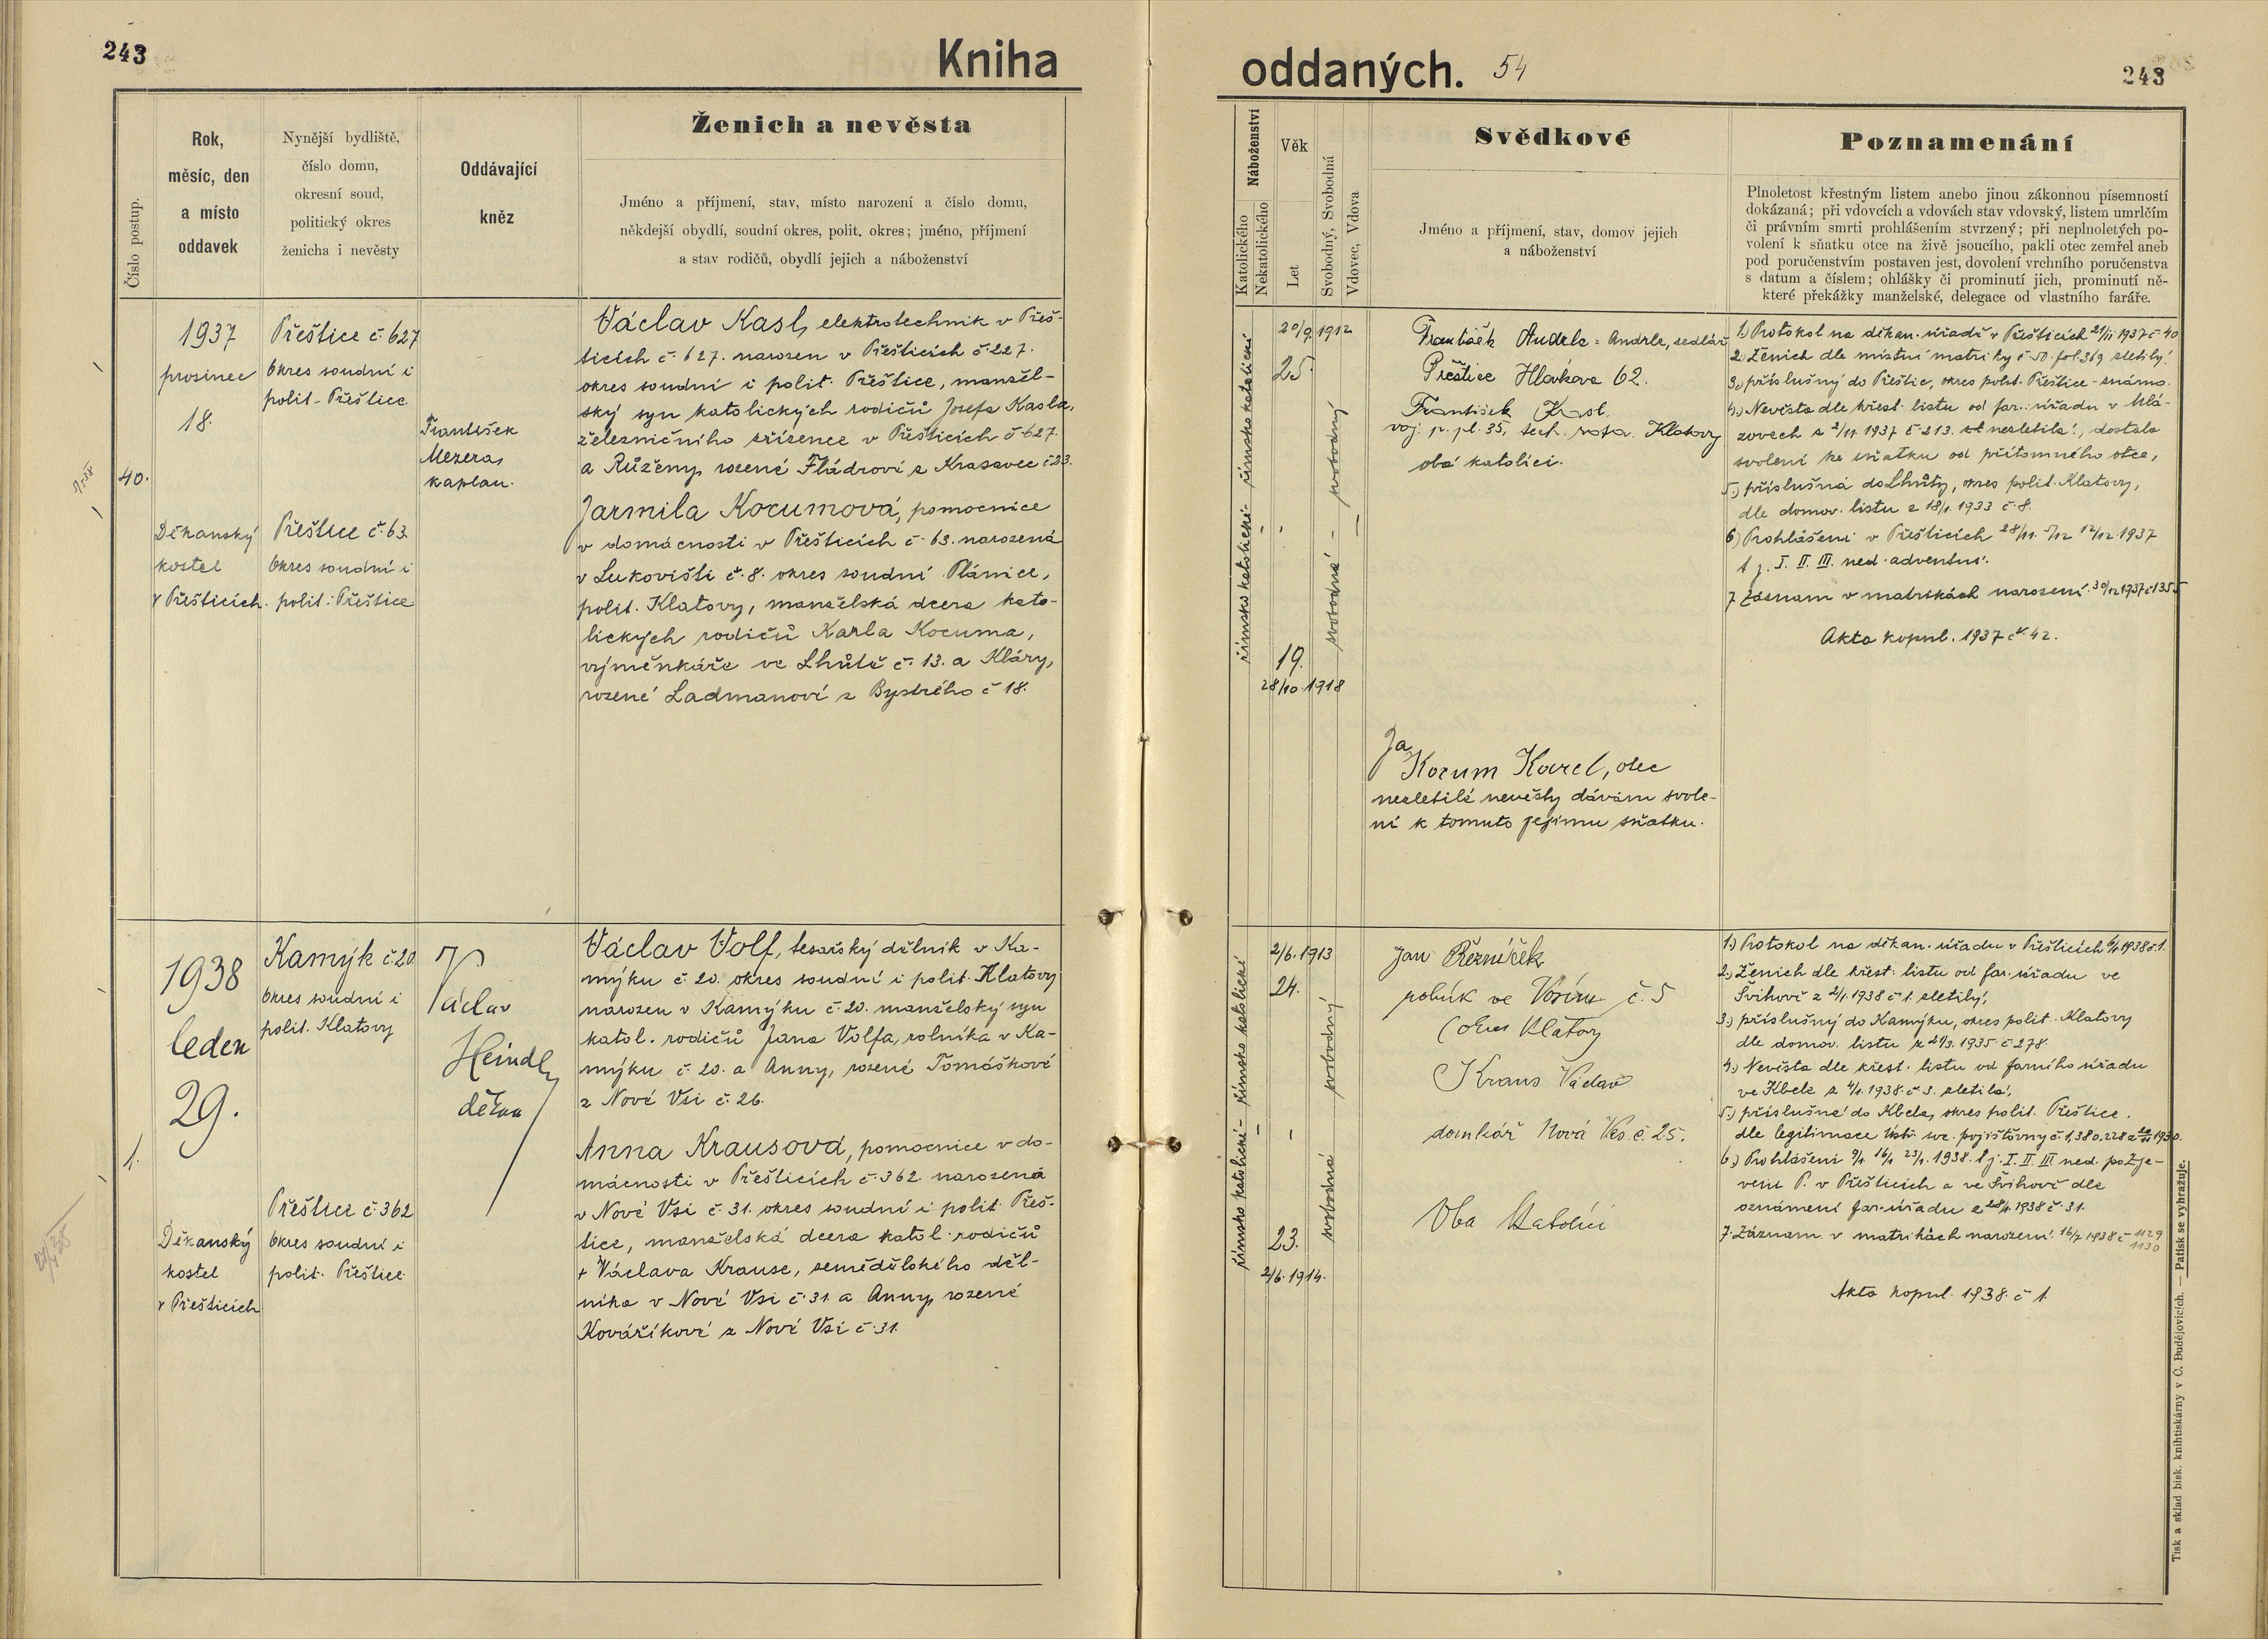 243
Kniha
oddaných. 54
243
Číslo postup.
Rok,
měsíc, den
a místo
oddavek
Nynější bydliště,
číslo domu,
okresní soud,
politický okres
ženicha i nevěsty
Oddávající
kněz
Ženich a nevěsta
Jméno a příjmení, stav, místo narození a číslo domu,
někdejší obydlí, soudní okres, polit. okres; jméno, příjmení
a stav rodičů, obydlí jejich a náboženství
Náboženství
Katolického
Nekatolického
Věk
Let
Svobodný, Svobodná
Vdovec, Vdova
Svědkové
Jméno a příjmení, stav, domov jejich
a náboženství
Poznamenání
Plnoletost křestným listem anebo jinou zákonnou písemností
dokázaná; při vdovcích a vdovách stav vdovský, listem umrlčím
či právním smrti prohlášením stvrzený; při neplnoletých po-
volení k sňatku otce na živě jsoucího, pakli otec zemřel aneb
pod poručenstvím postaven jest, dovolení vrchního poručenstva
s datum a číslem; ohlášky či prominutí jich, prominutí ně-
které překážky manželské, delegace od vlastního faráře.
40.
1937
prosinec
18.
Děkanský
kostel
v Přešticích.
Přeštice č. 627
Okres soudní i
polit. Přeštice.
Přeštice č. 63.
Okres soudní i
polit. Přeštice
František
Mezera,
kaplan.
Václav Kasl, elektrotechnik v Přeš-
ticích č. 627. narozen v Přešticích č. 227.
okres soudní i polit. Přeštice, manžel-
ský syn katolických rodičů Josefa Kasla,
železničního zřízence v Přešticích č 627.
a Růženy, rozené Fládrové z Krasavec č 23.
Jarmila Kocumová, pomocnice
v domácnosti v Přešticích č. 63. narozená
v Lukovišti č. 8. okres soudní Plánice,
polit. Klatovy, manželská dcera kato-
lických rodičů Karla Kocuma,
výměnkáře ve Lhůtě č. 13. a Kláry,
rozené Ladmanové z Bystrého č 18.
římsko katolické - římsko katolické
20/9. 1912
25.
19.
28/10. 1918
svobodná - svobodný
František Andrle = Andrle, sedlář
Přeštice Hlávkova 62.
František Kasl.
voj. p. pl. 35, tech. rota. Klatovy
obá katolíci.
Já
Kocum Karel, otec
nezletilé nevěsty dávám svole-
ní k tomuto jejímu sňatku.
1.) Protokol na děkan. úřadě v Přešticích 21/11 1937 č 40
2.) Ženich dle místní matriky č 50. fol. 369 zletilý.
3.) příslušný do Přeštic, okres polit. Přeštice - známo.
4.) Nevěsta dle křest. listu od far. úřadu v Mlá-
zovech z 2/11. 1937 č 213. nezletilá, dostala
svolení ke sňatku od přítomného otce,
5.) příslušná do Lhůty, okres polit. Klatovy,
dle domov. listu z 18/1. 1933 č. 8.
6) Prohlášeni v Přešticích 28/11. 5/12 12/12. 1937
t j. I. II. III. ned. adventní.
7 Záznam v matrikách narození. 30/12 1937 č 1355
Akta kopul. 1937 č. 42.
1.
1938
leden
29.
Děkanský
kostel
v Přešticích
Kamýk č. 20.
Okres soudní i
polit. Klatovy
Přeštice č 362
Okres soudní i
polit. Přeštice
Václav
Heindl,
děkan
Václav Volf, tesařský dělník v Ka-
mýku č. 20. okres soudní i polit. Klatovy
narozen v Kamýku č. 20. manželský syn
katol. rodičů Jana Volfa, rolníka v Ka-
mýku č. 20. a Anny, rozené Tomáškové
z Nové Vsi č. 26.
Anna Krausová, pomocnice v do-
mácnosti v Přešticích č. 362. narozená
v Nové Vsi č. 31. okres soudní i polit. Přeš-
tice, manželská dcera katol. rodičů
+ Václava Krause, zemědělského děl-
níka v Nové Vsi č. 31 a Anny, rozené
Kovaříkové z Nové Vsi č. 31.
římsko katolické - římsko katolické
2/6. 1913
24.
23.
2/6. 1914.
svobodná svobodný
Jan Řezníček
rolník ve Vosí č. 5
(okres Klatovy
Kraus Václav
domkář Nová Ves. č. 25.
Oba katolíci
1.) Protokol na děkan. úřadu v Přešticích 6/1. 1938 č 1.
2.) Ženich dle křest. listu od far. úřadu ve
Švihově z 2/1. 1938 č 1. zletilý,
3.) příslušný do Kamýku, okres polit. Klatovy
dle domov. listu z 21/3. 1935. č 278.
4.) Nevěsta dle křest. listu od farního úřadu
ve Kbele z 4/1. 1938. č 3. zletilá,
5.) příslušná do Kbela, okres polit. Přeštice.
dle legitimace Ústř. soc. pojišťovny č. 1,380.228
6.) Prohlášeni 9/1. 16/1 23/1. 1938. t j. I. II. III ned. po Zje-
vení P. v Přešticích a ve Švihově dle
oznámení far. úřadu z 28/1. 1938 č. 31.
7. Záznam v matrikách narození. 16/2 1938 č 1129
1130
Akta kopul. 1938. č 1.
Tisk a sklad bisk. knihtiskárny v Č. Budějovicích. — Patisk se vyhražuje.